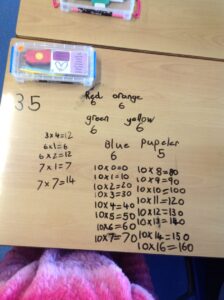 35
Red orange
6 6
green yellow
6 6
Blue pupeler
6 5
3x4=12
6x1=6
6x2=12
7x1=7
7x7=14
10x0=0
10x1=10
10x2=20
10x3=30
10x4=40
10x5=50
10x6=60
10x7=70
10x8=80
10x9=90
10x10=100
10x11=120
10x12=130
10x13=140
10x14=150
10x16=160